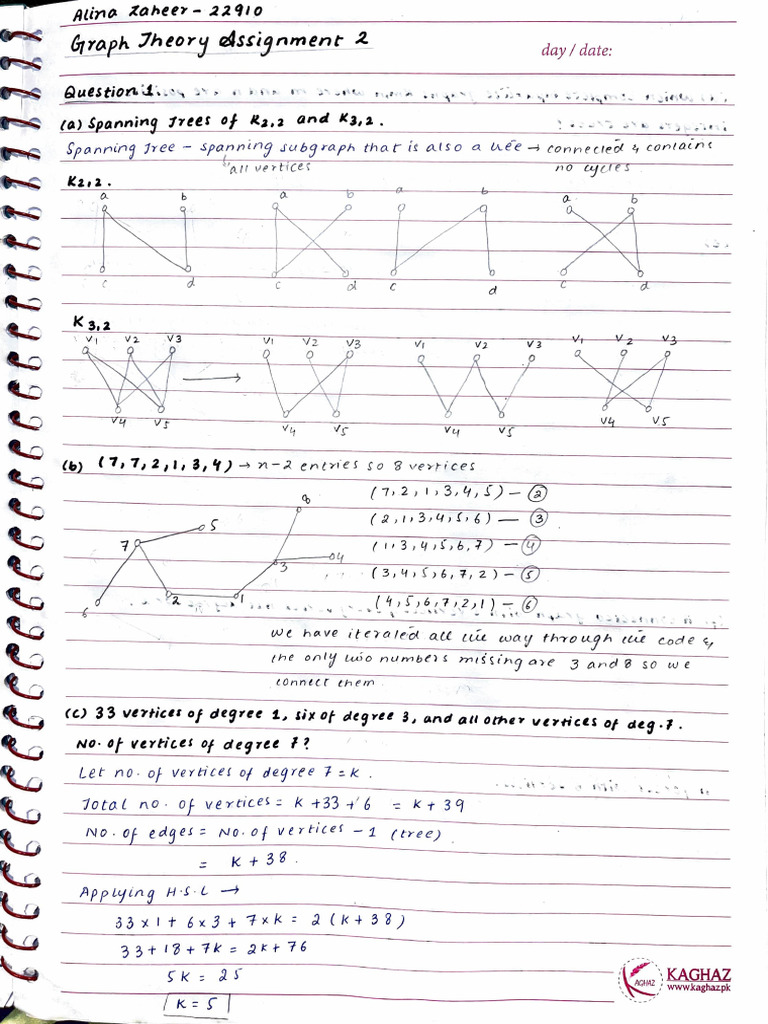 Alina Zaheer - 22910
Graph Theory Assignment 2
day / date:
Question 1.
(a) Spanning Trees of K2,2 and K3,2.
Spanning Tree - spanning subgraph that is also a tree → connected & contains
all vertices no cycles
K2,2.
a b a b a b a b
c d c d c d c d
K3,2
V1 V2 V3 V1 V2 V3 V1 V2 V3 V1 V2 V3
V4 V5 V4 V5 V4 V5 V4 V5
(b) (7,7,2,1,3,4) → n-2 entries so 8 vertices
(7,2,1,3,4,5) - 2
(2,1,3,4,5,6) - 3
(1,3,4,5,6,7) - 4
(3,4,5,6,7,2) - 5
(4,5,6,7,2,1) - 6
8
5
7
4
3
6
2
1
we have iterated all the way through the code &
the only two numbers missing are 3 and 8 so we
connect them
(c) 33 vertices of degree 1, six of degree 3, and all other vertices of deg. 7.
No. of vertices of degree 7?
Let no. of vertices of degree 7 = k.
Total no. of vertices = k + 33 + 6 = k + 39
No. of edges = No. of vertices - 1 (tree)
= k + 38.
Applying H.S.L →
33 x 1 + 6 x 3 + 7 x k = 2 (k + 38)
33 + 18 + 7k = 2k + 76
5k = 25
k = 5
KAGHAZ
www.kaghaz.pk